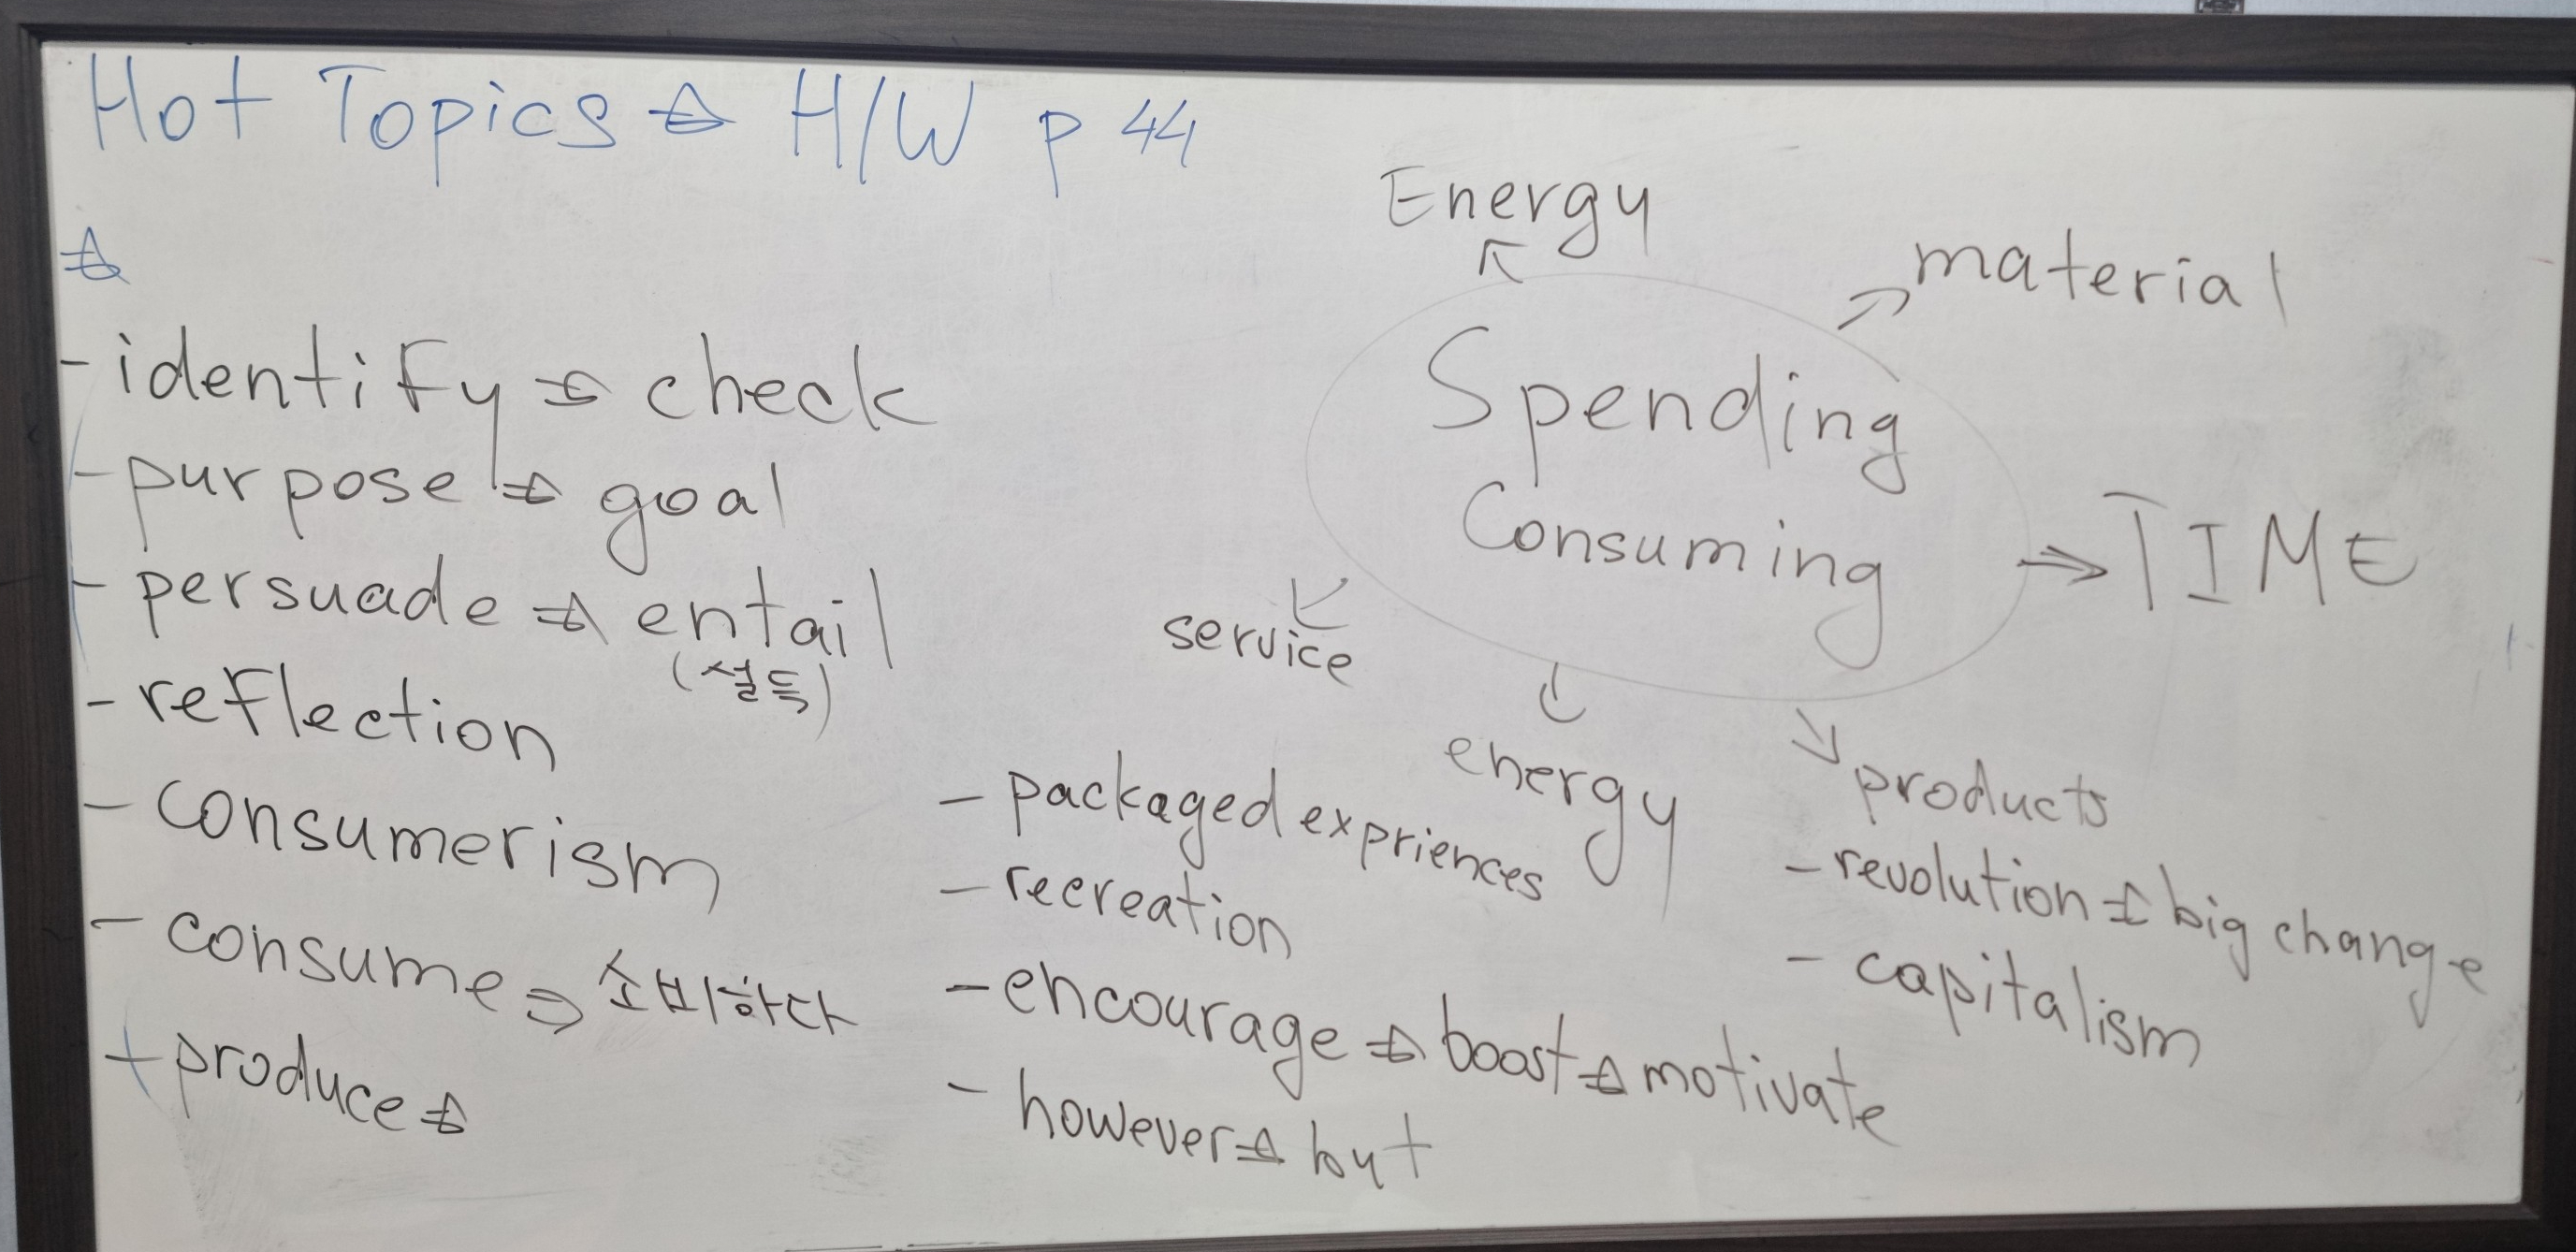 Hot Topics ⇒ H/W p 44
⇒
- identify ⇒ check
- purpose ⇒ goal
- persuade ⇒ entail
(설득)
- reflection
- consumerism
- consume ⇒ 소비하다
- produce ⇒
Energy
material
Spending
Consuming
⇒ TIME
service
energy
products
- packaged expriences
- recreation
- encourage ⇒ boost ⇒ motivate
- however ⇒ but
- revolution ⇒ big change
- capitalism